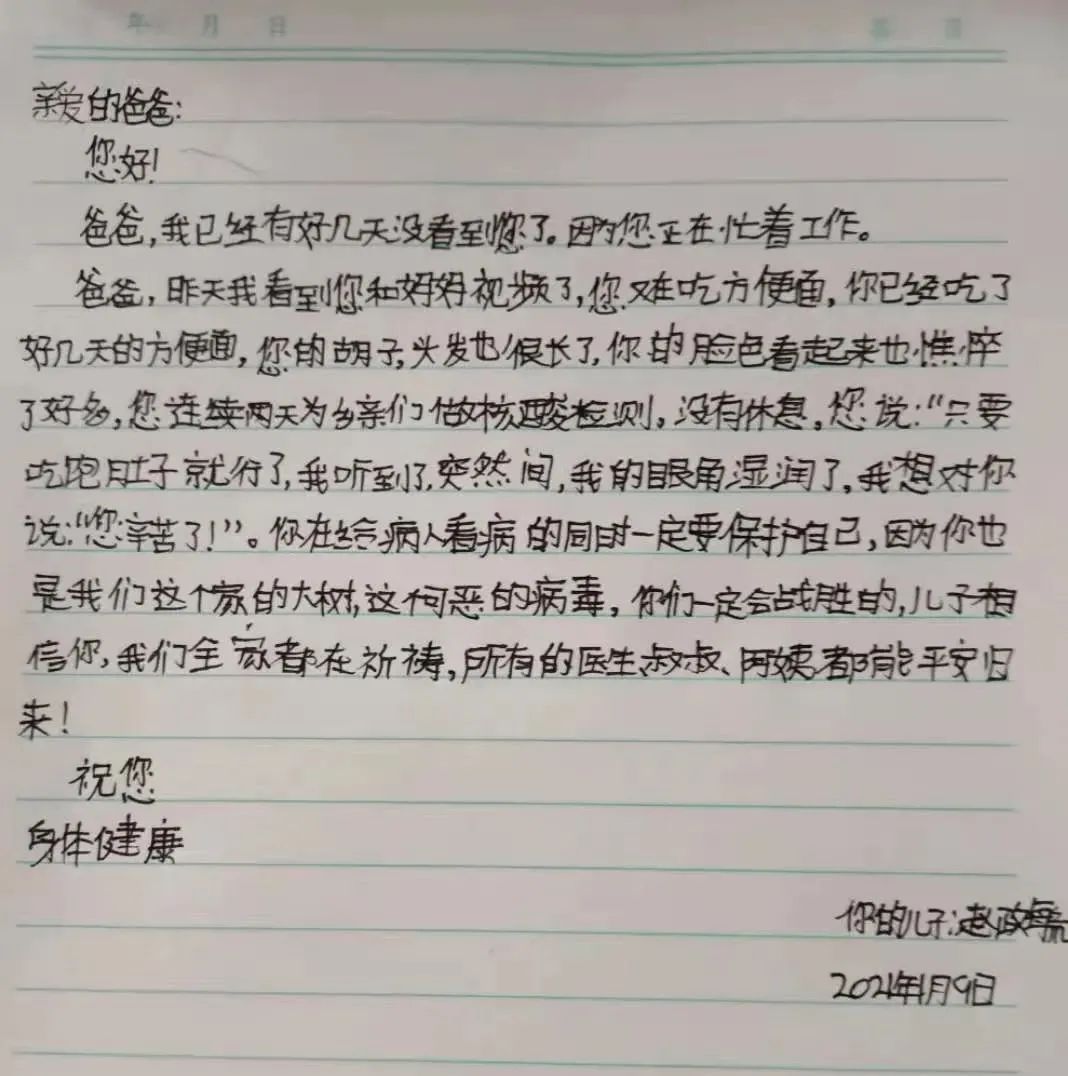 年 月 日
亲爱的爸爸:
您好!
爸爸,我已经有好几天没看到您了。因为您正在忙着工作。
爸爸,昨天我看到您和妈妈视频了,您又在吃方便面,你已经吃了
好几天的方便面,您的胡子,头发也很长了,你的脸色看起来也憔悴
了好多,您连续两天为乡亲们做核酸检测。没有休息。您说:“只要
吃跑肚子就行了,我听到了,突然间,我的眼角湿润了,我想对你
说:“您辛苦了!”。你在给病人看病的同时一定要保护自己,因为你也
是我们这个家的大树,这何恶的病毒,你们一定会战胜的,儿子相
信你,我们全家都在祈祷,所有的医生叔叔、阿姨都能平安归
来!
祝您
身体健康
你的儿子:赵政
2021年1月9日